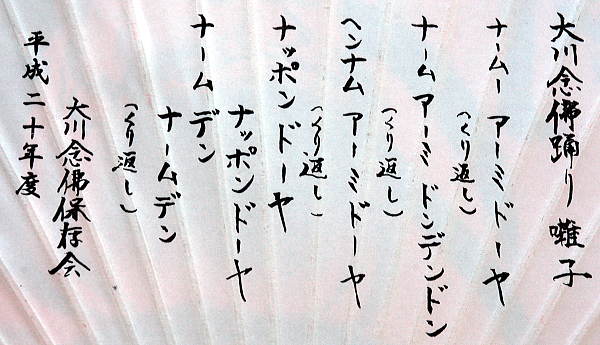 大川念佛踊り 囃子
ナームー アーミドーヤ
(くり返し)
ナームアーミ ドンデンドン
(くり返し)
ヘンナム アーミドーヤ
(くり返し)
ナッポンドーヤ
ナッポンドーヤ
ナームデン
ナームデン
(くり返し)
大川念佛保存会
平成二十年度